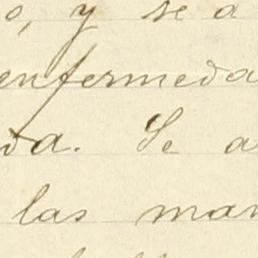 o, y se a
enfermeda
da. Se a
las man